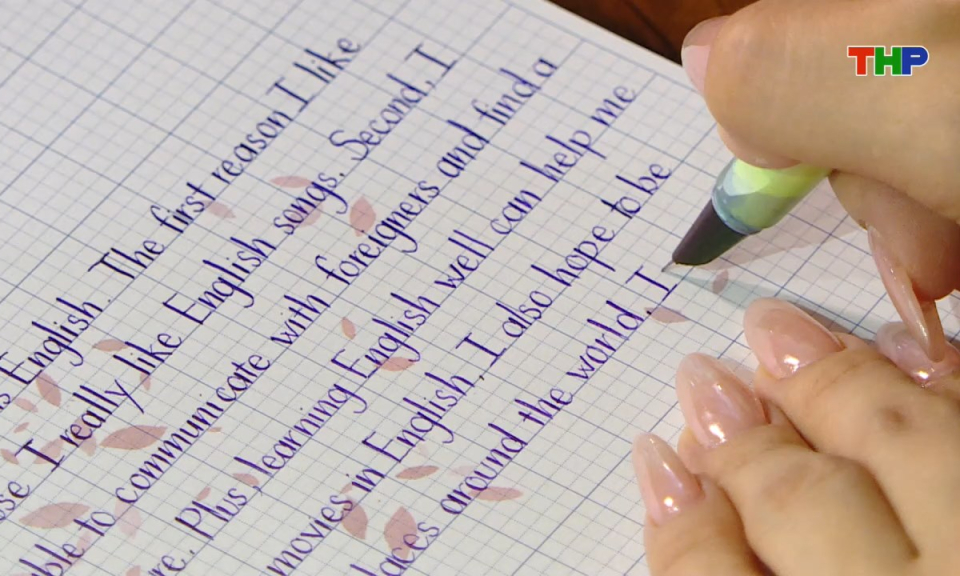 THP
English. The first reason I like
I really like English songs. Second, I
to communicate with foreigners and find a
Plus, learning English well can help me
movies in English. I also hope to be
around the world. I